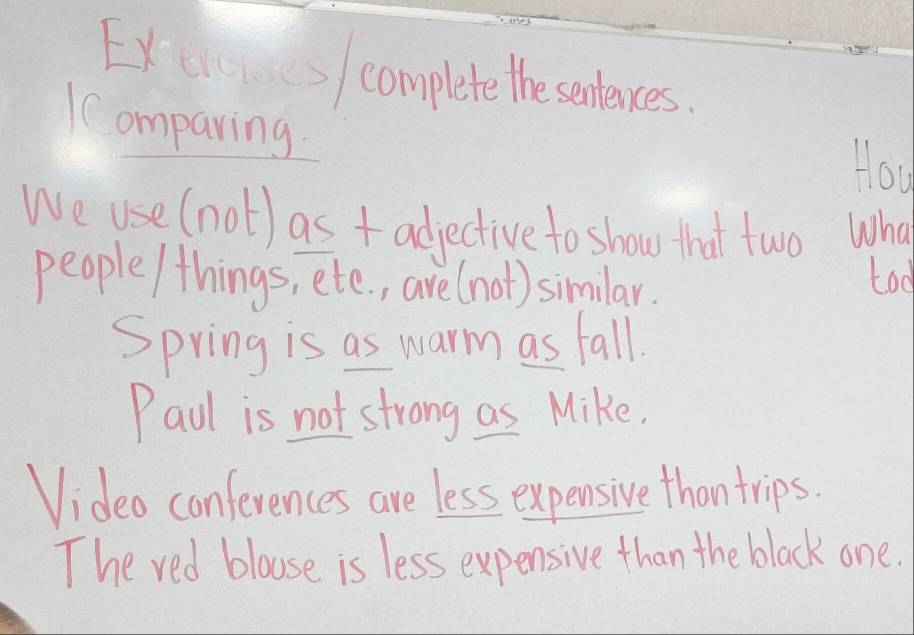 Exercises/complete the sentences.
1Comparing.
We use (not) as + adjective to show that two
people/things, etc., are (not) similar.
Spring is as warm as fall.
Paul is not strong as Mike.
Video conferences are less expensive than trips.
The red blouse is less expensive than the black one.